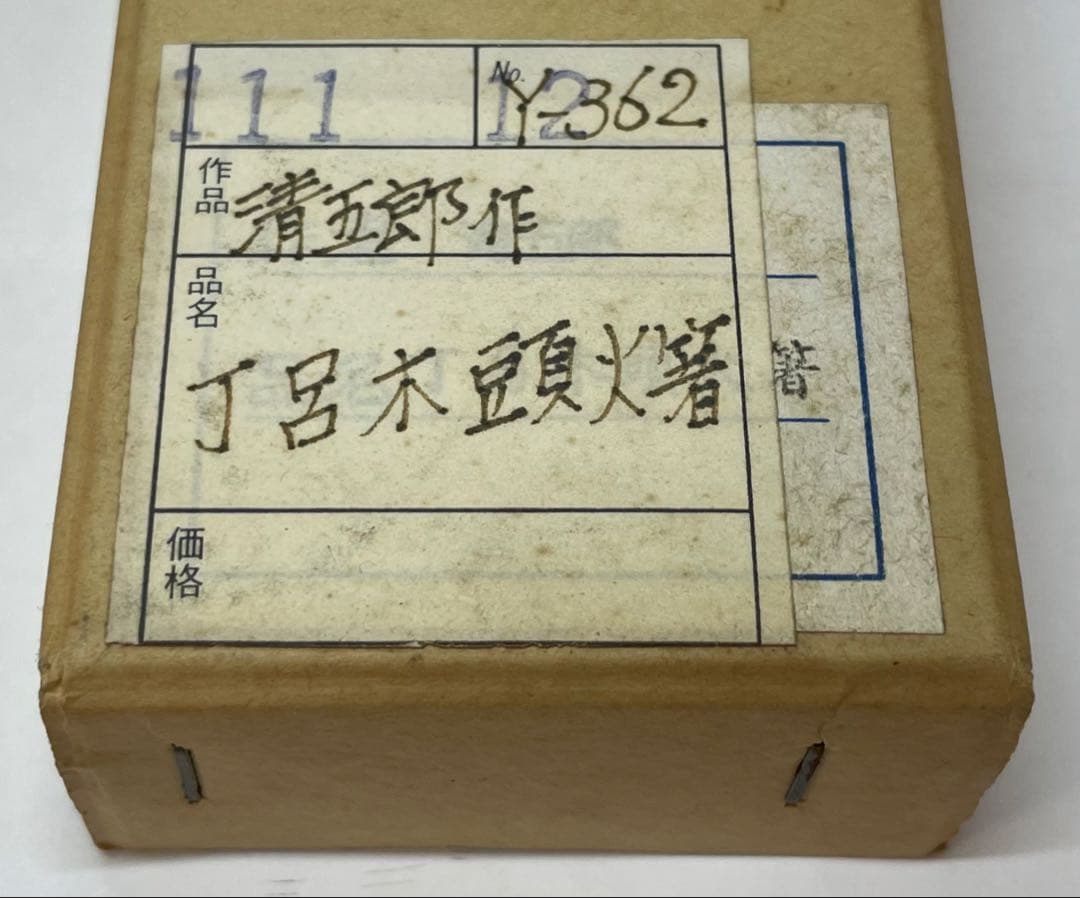 111
No. 12 Y-362
作品 清五郎作
品名
丁呂木頭火箸
価格
箸